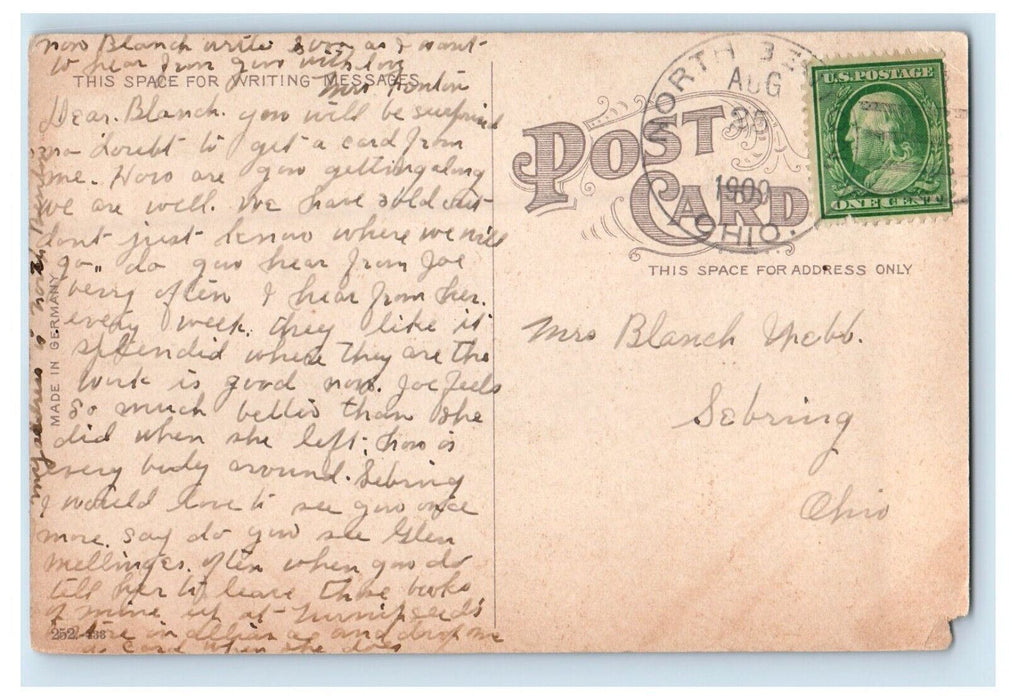 now Blanch write soon as I want
to hear from you with love
THIS SPACE FOR WRITING MESSAGES
Mrs
Dear. Blanch. you will be surprised
no doubt to get a card from
me. How are you getting along
we are well. we have sold out
dont just know where we will
go. do you hear from Joe
very often I hear from her.
every week. they like it
splendid where they are the
work is good now. Joe feels
so much better than she
did when she left. how is
every body around. Sebring
I would love to see you once
more. say do you see Glen
Mellinges. often when you do
tell her to leave those books
of mine up at Turnipseeds
store in and drop me
a card when she does
my address is North
MADE IN GERMANY
252
POST CARD
NORTH BE
AUG
25
1909
OHIO.
U.S. POSTAGE
ONE CENT
THIS SPACE FOR ADDRESS ONLY
Mrs Blanch Webb.
Sebring
Ohio